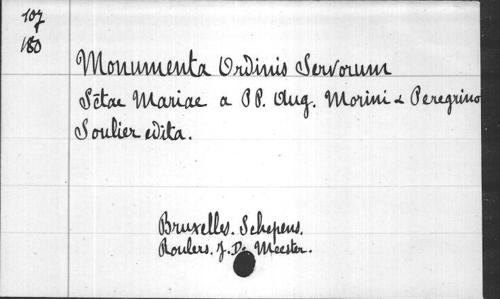 107
180
Monumenta Ordinis Servorum
Sctae Mariae a PP. Aug. Morini & Peregrino
Soulier edita.
Bruxelles. Schepens.
Roulers. J. De Meester.